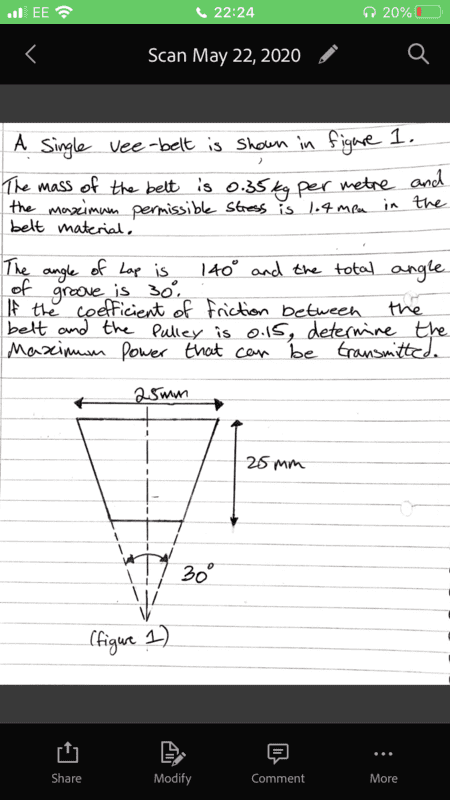 EE 22:24 20%
Scan May 22, 2020
A Single vee-belt is shown in figure 1.
The mass of the belt is 0.35 kg per metre and
the maximum permissible stress is 1.4 mpa in the
belt material.
The angle of Lap is 140° and the total angle
of groove is 30°.
If the coefficient of friction between the
belt and the Pulley is 0.15, determine the
Maximum Power that can be transmitted.
25mm
25 mm
30°
(figure 1)
Share Modify Comment More